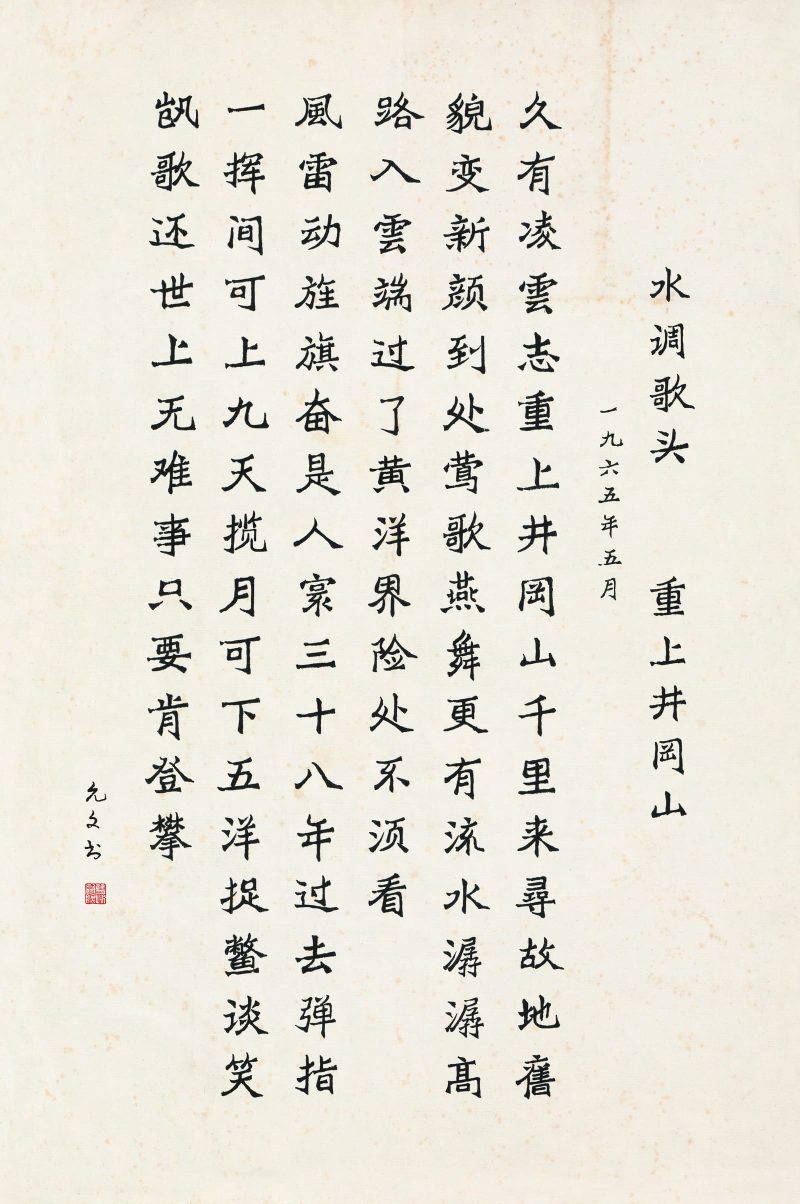 水调歌头　重上井岡山
一九六五年五月
久有凌雲志重上井岡山千里来尋故地舊
貌变新颜到处莺歌燕舞更有流水潺潺高
路入雲端过了黄洋界险处不须看
風雷动旌旗奋是人寰三十八年过去弹指
一挥间可上九天揽月可下五洋捉鳖谈笑
凯歌还世上无难事只要肯登攀
允文书